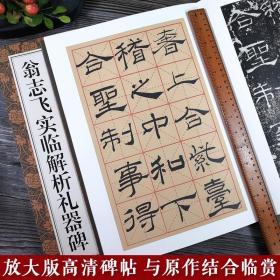 翁志飞实临解析礼器碑
奢上合紫臺
稽之中和下
合聖制事得
放大版高清碑帖 与原作结合临赏